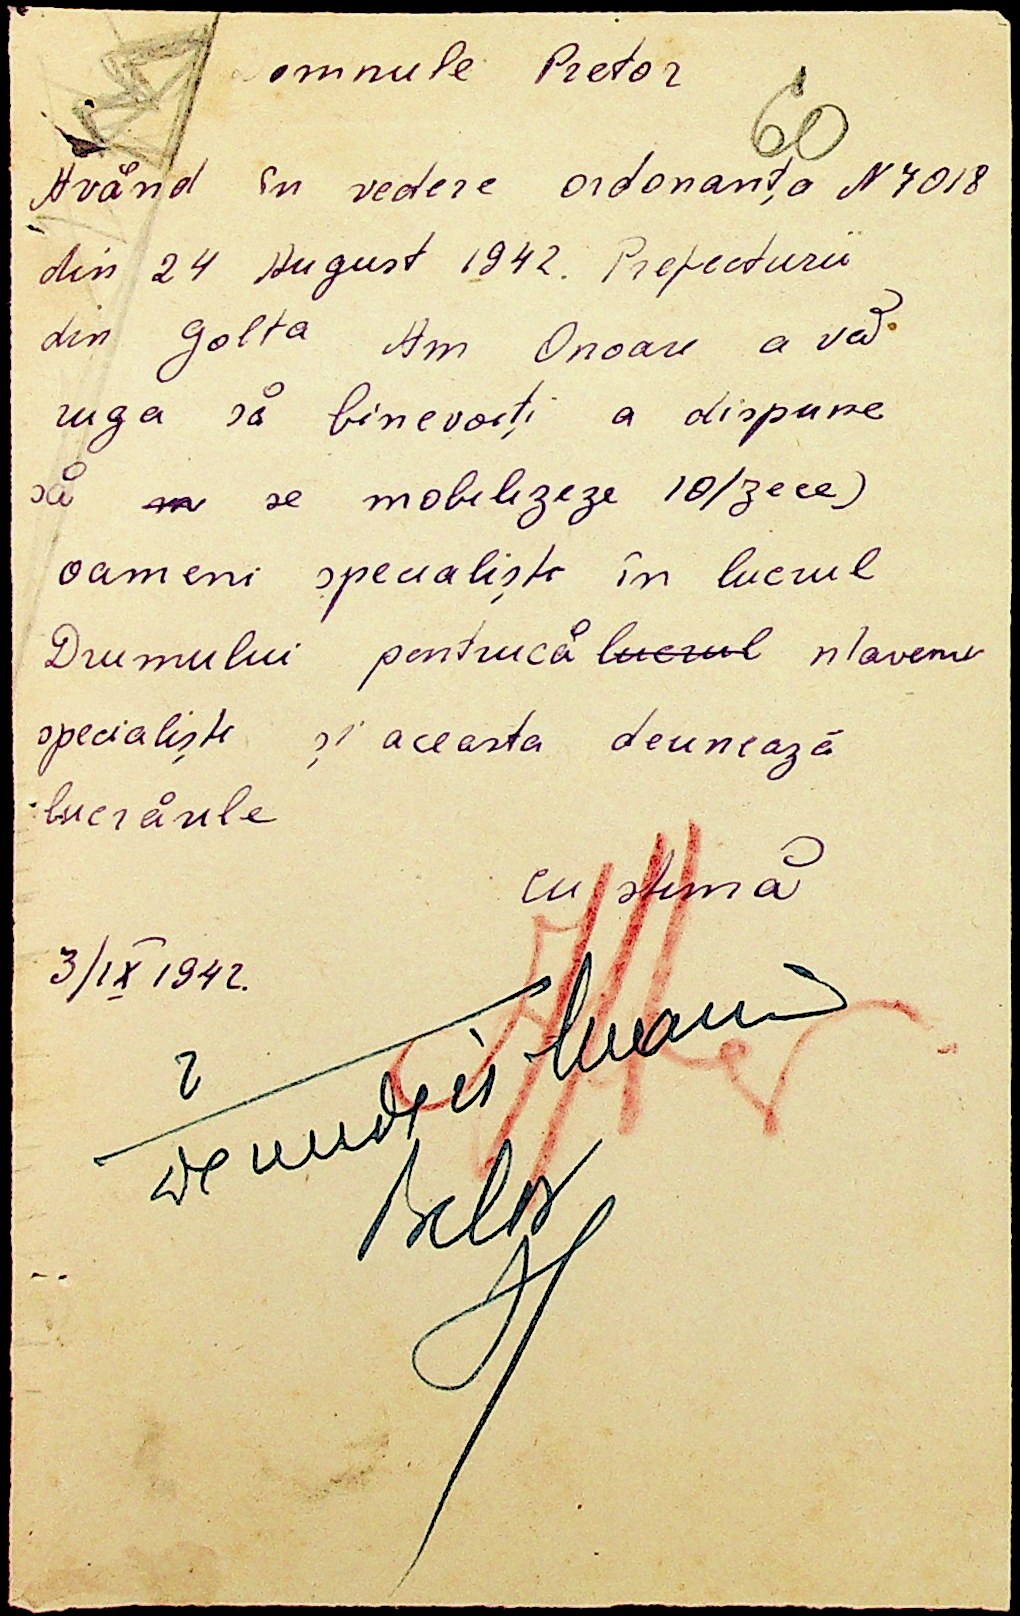 omnule Pretor
60
Având în vedere ordonanța N 7018
din 24 August 1942. Prefecturii
din Golta Am Onoare a vă
ruga să binevoiți a dispune
să se mobilizeze 10/zece)
oameni specialiști în lucrul
Drumului pentrucă lucrul n/avem
specialiști și aceasta deunează
lucrările
cu stimă
3/IX 1942.